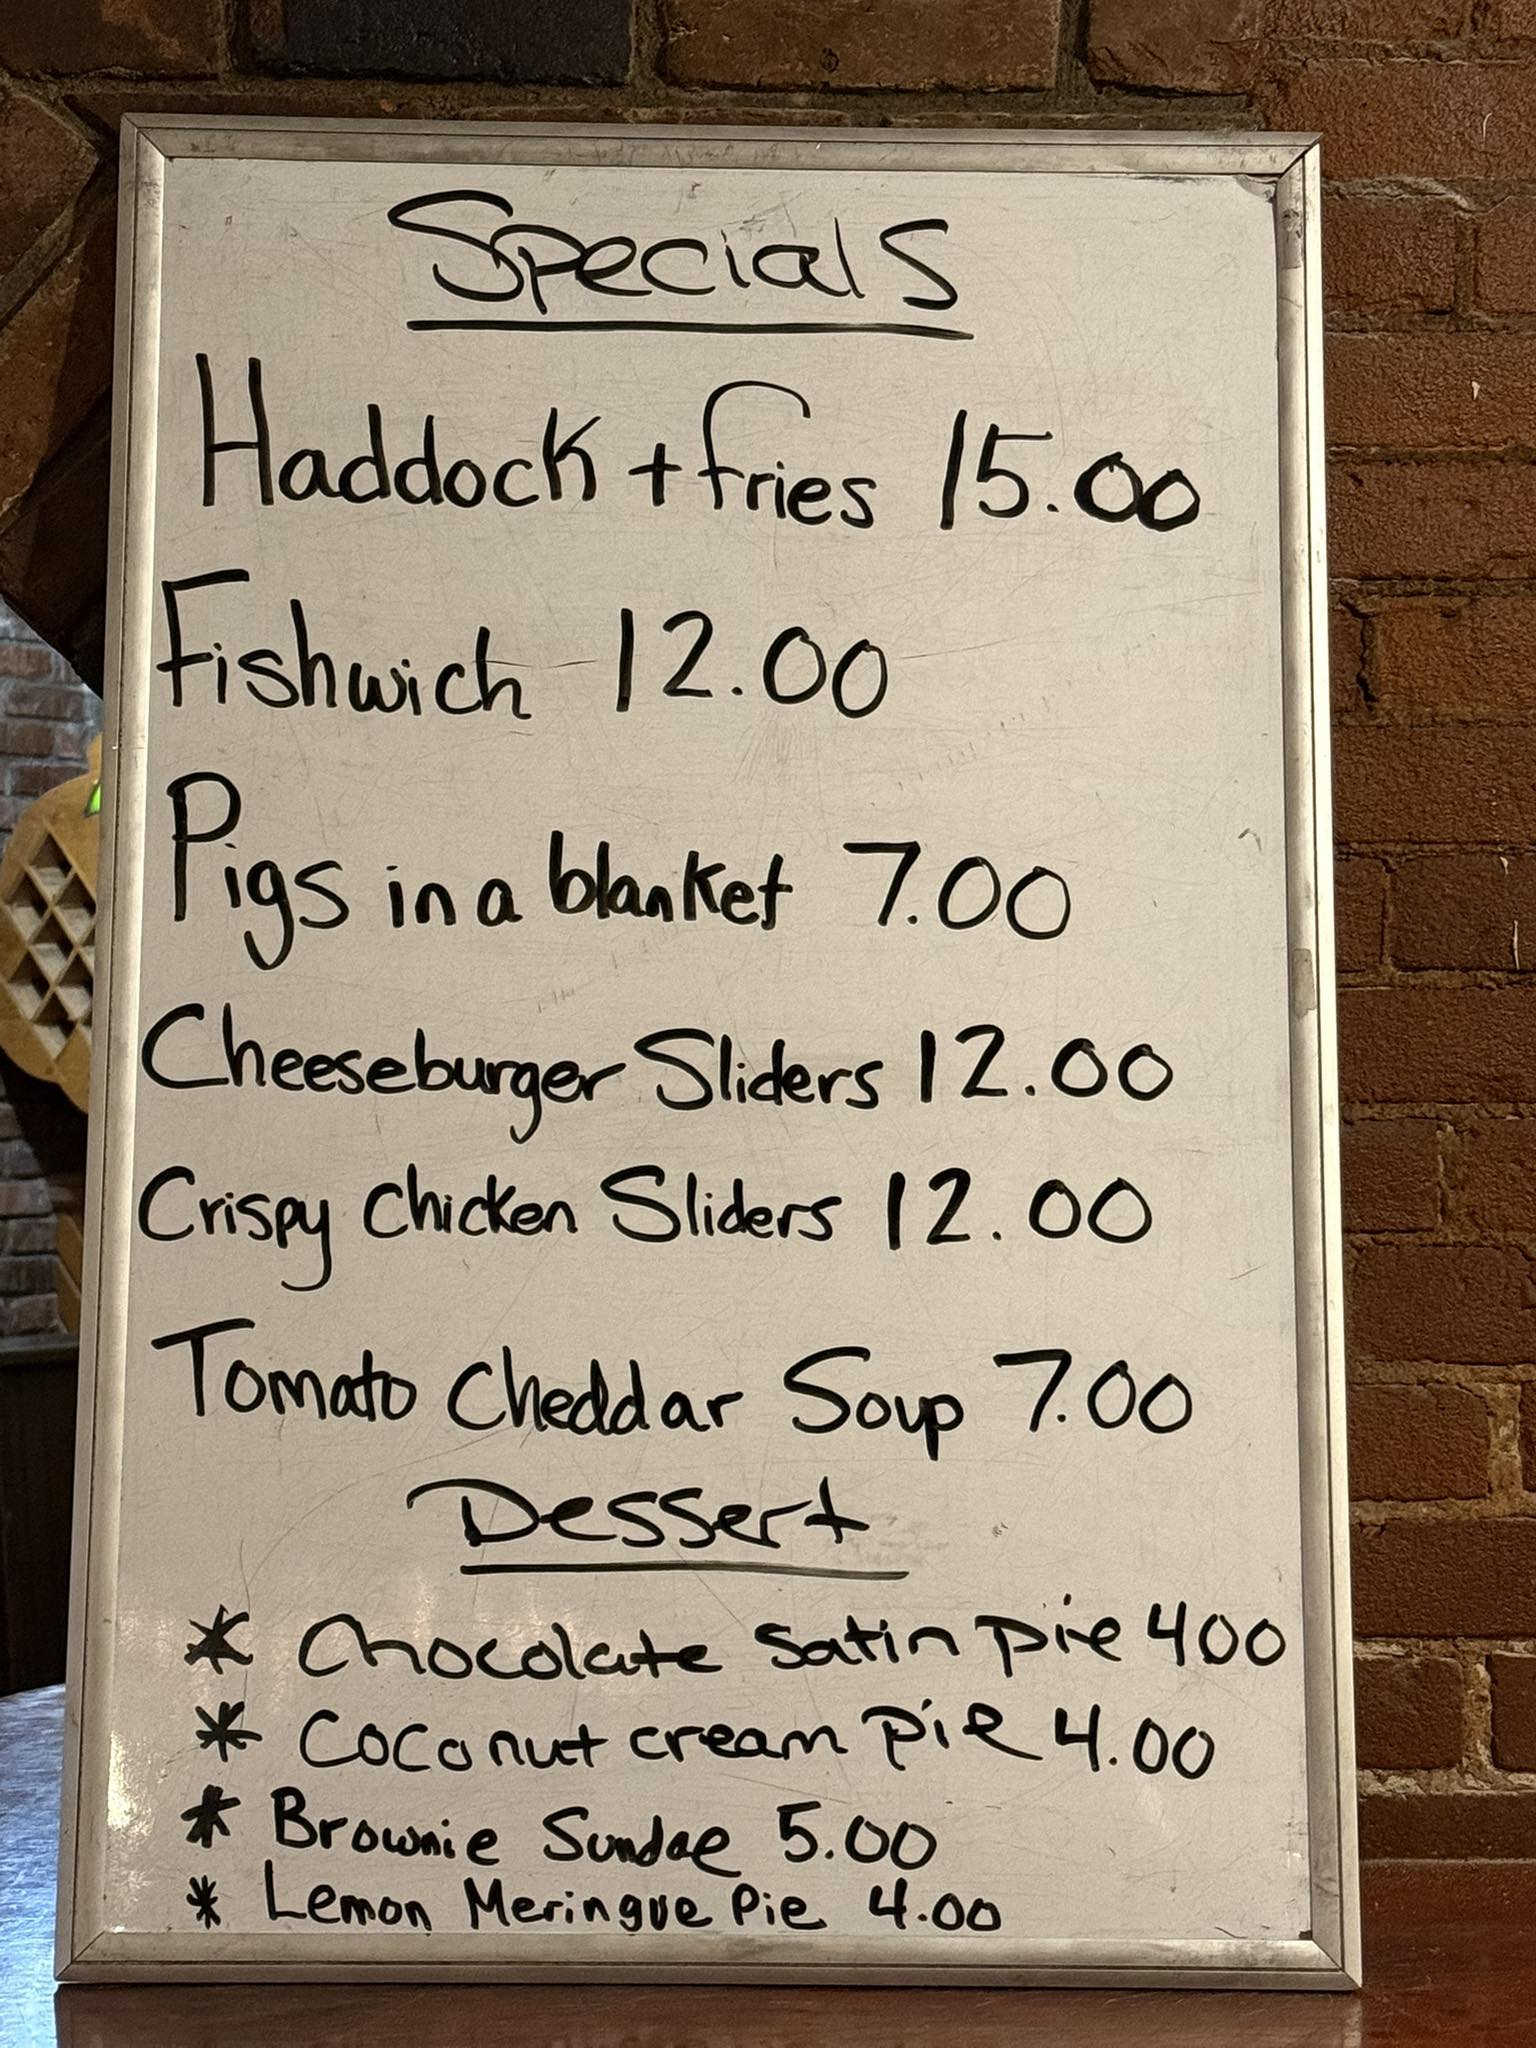 Specials
Haddock + fries 15.00
Fishwich 12.00
Pigs in a blanket 7.00
Cheeseburger Sliders 12.00
Crispy Chicken Sliders 12.00
Tomato Cheddar Soup 7.00
Dessert
* Chocolate satin pie 400
* Coconut cream pie 4.00
* Brownie Sundae 5.00
* Lemon Meringue Pie 4.00